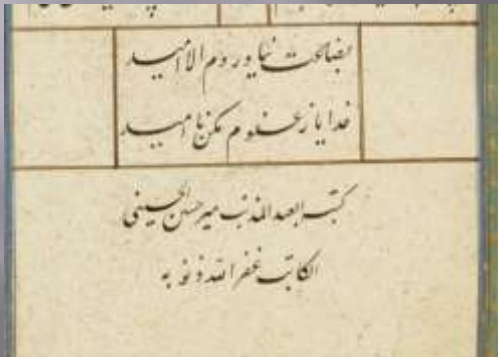 بضاعت نیاوردم الا امید
خدایا ز عفوم مکن نا امید
کتبه العبد المذنب میر حسین الحسینی
الکاتب غفر الله ذنوبه